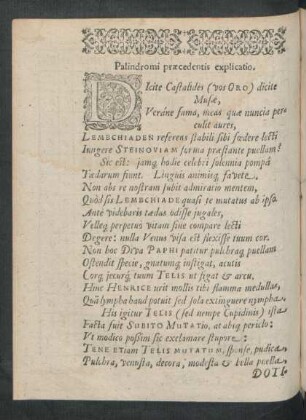 Palindromi præcedentis explicatio.
DIcite Castalides (vos ORO) dicite
Musæ,
Veráne fama, meas quæ nuncia per-
culit aures,
LEMBCHIADEN referens stabili sibi fœdere lecti
Jungere STEINOVIAM forma præstante puellam?
Sic est: jamq; hodie celebri solennia pompâ
Tædarum fiunt. Linguis animisq; favete.
Non abs re nostram subit admiratio mentem,
Quòd sis LEMBCHIADE quasi te mutatus ab ipso.
Ante videbaris tædas odisse jugales,
Velleq; perpetuo vitam sine compare lecti
Degere: nulla Venus visa est flexisse tuum cor.
Non hoc Diva PAPHI patitur pulchraq; puellam
Ostendit specie, gnatumq; instigat, acutis
Corq; jecurq; tuum TELIS ut figat & arcu.
Hinc HENRICE urit mollis tibi flamma medullas,
Quã lympha haud potuit sed sola extinguere nympha.
His igitur TELIS (sed nempe Cupidinis) ista
Facta fuit SUBITO MUTATIO, at absq; periclo:
Ut modico possim sic exclamare stupore:
TENE ETIAM TELIS MUTATUM, sponse, pudica,
Pulchra, venusta, decora, modesta & bella puella
DOTI-